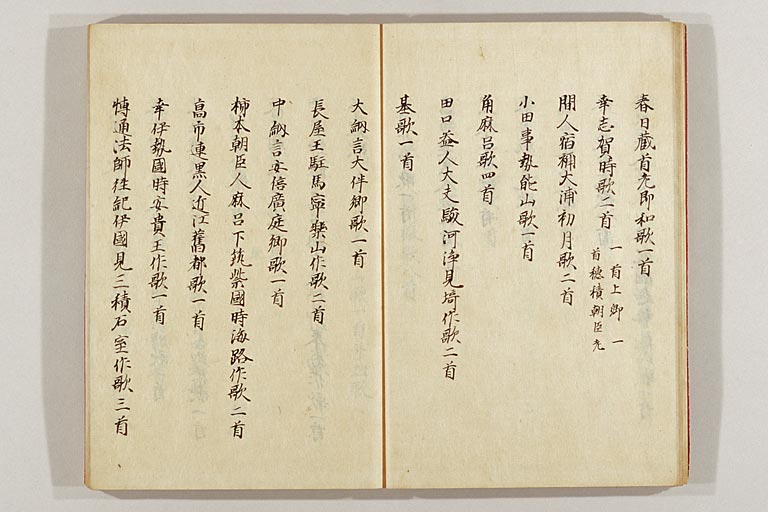 春日蔵首老即和歌一首
幸志賀時歌二首 一首上卿 一
首穂積朝臣老
間人宿祢大浦初月歌二首
小田事勢能山歌一首
角麻呂歌四首
田口益人大夫駿河浄見埼作歌二首
基歌一首
大納言大伴卿歌一首
長屋王駐馬寧樂山作歌二首
中納言安倍廣庭卿歌一首
柿本朝臣人麻呂下筑紫國時海路作歌二首
高市連黒人近江舊都歌一首
幸伊勢國時安貴王作歌一首
博通法師往紀伊國見三積石室作歌三首